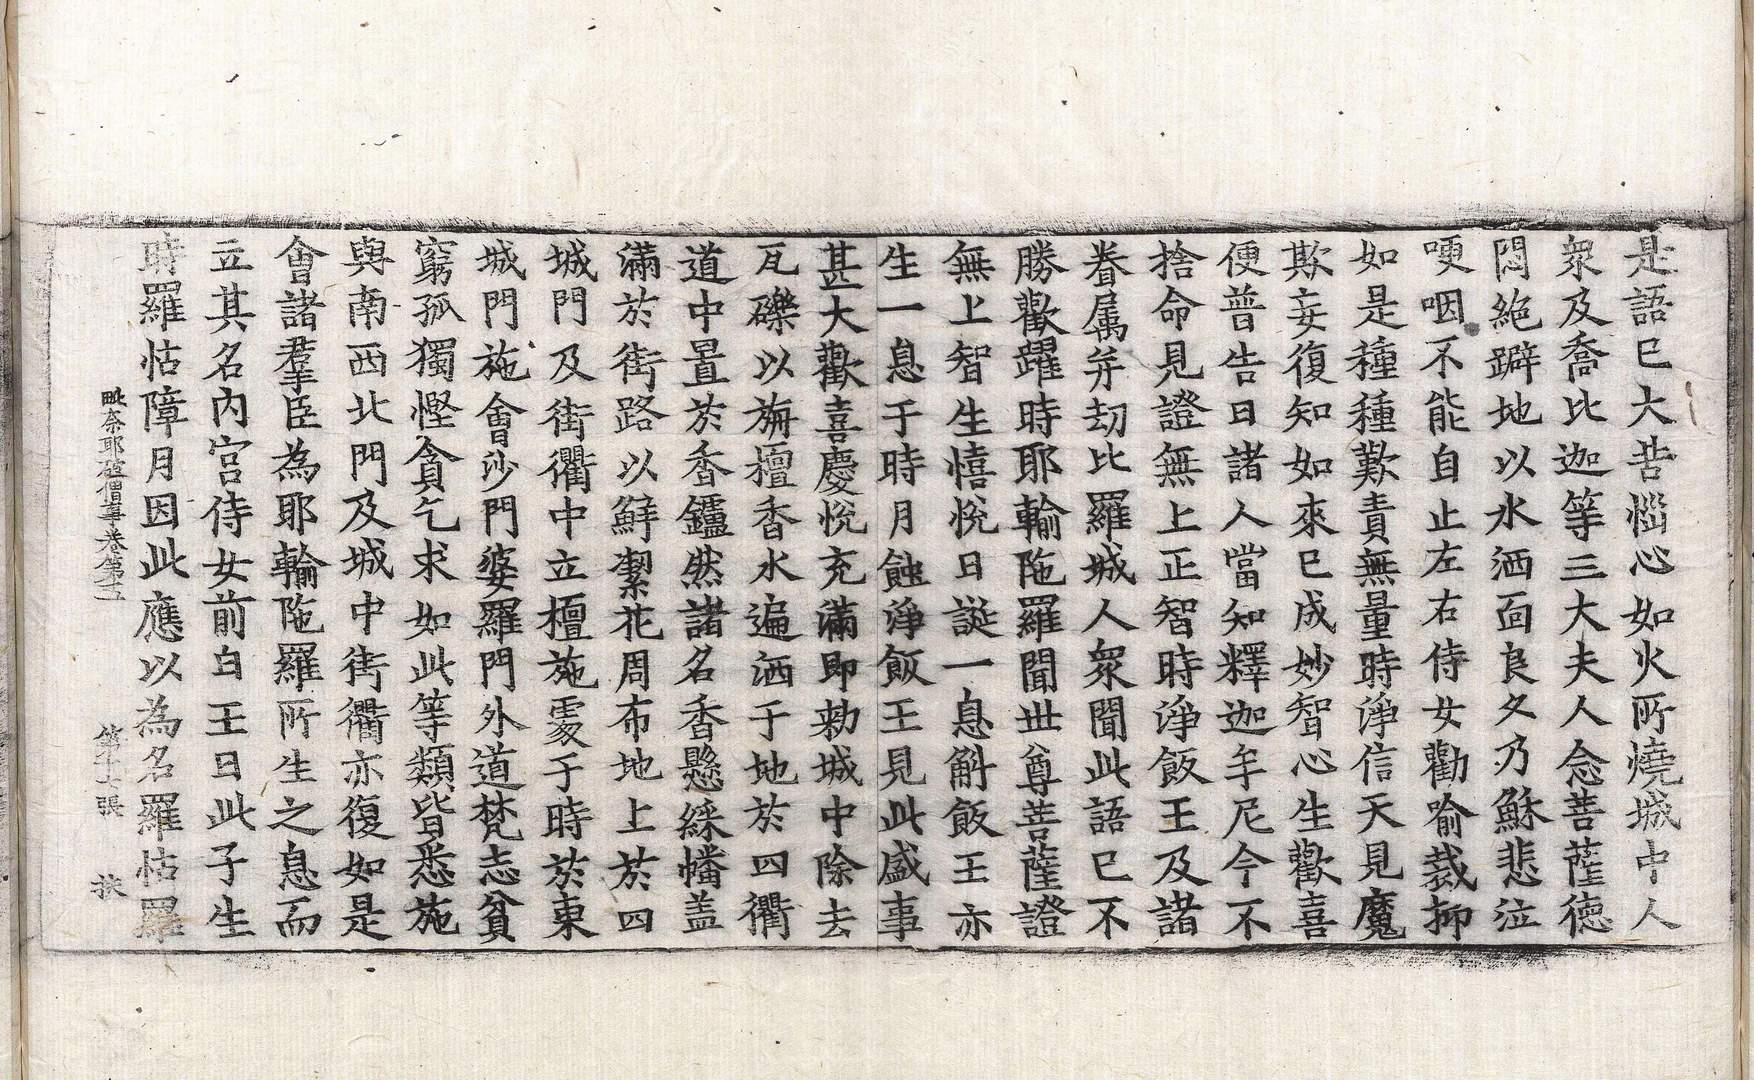 是語已大苦惱心如火所燒城中人
衆及喬比迦等三大夫人念菩薩德
悶絶躃地以水洒面良久乃穌悲泣
哽咽不能自止左右侍女勸喻裁抑
如是種種歎責無量時淨信天見魔
欺妄復知如來已成妙智心生歡喜
便普告曰諸人當知釋迦牟尼今不
捨命見證無上正智時淨飯王及諸
眷属并劫比羅城人衆聞此語已不
勝歡躍時耶輸陁羅聞世尊菩薩證
無上智生憘悅日誕一息斛飯王亦
生一息于時月蝕淨飯王見此盛事
甚大歡喜慶悅充滿即勑城中除去
瓦礫以旃檀香水遍洒于地於四衢
道中置於香鑪然諸名香懸綵幡盖
滿於街路以鮮潔花周布地上於四
城門及街衢中立檀施䖏于時於東
城門施會沙門婆羅門外道梵志貧
窮孤獨慳貪乞求如此等類皆悉施
與南西北門及城中街衢亦復如是
會諸羣臣為耶輸陁羅所生之息而
立其名內宮侍女前白王曰此子生
時羅怙障月因此應以為名羅怙羅
毗奈耶破僧事卷第五 第十六張 挾